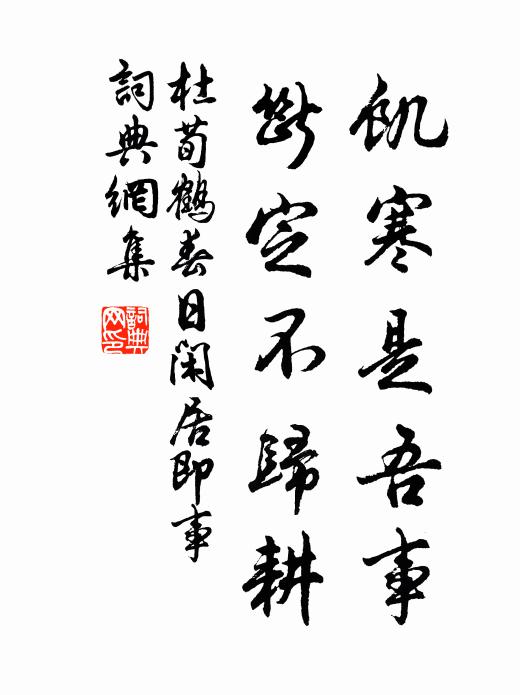 飢寒是吾事
斷定不歸耕
杜荀鶴春日閑居即事
詞典網集
詞典网印